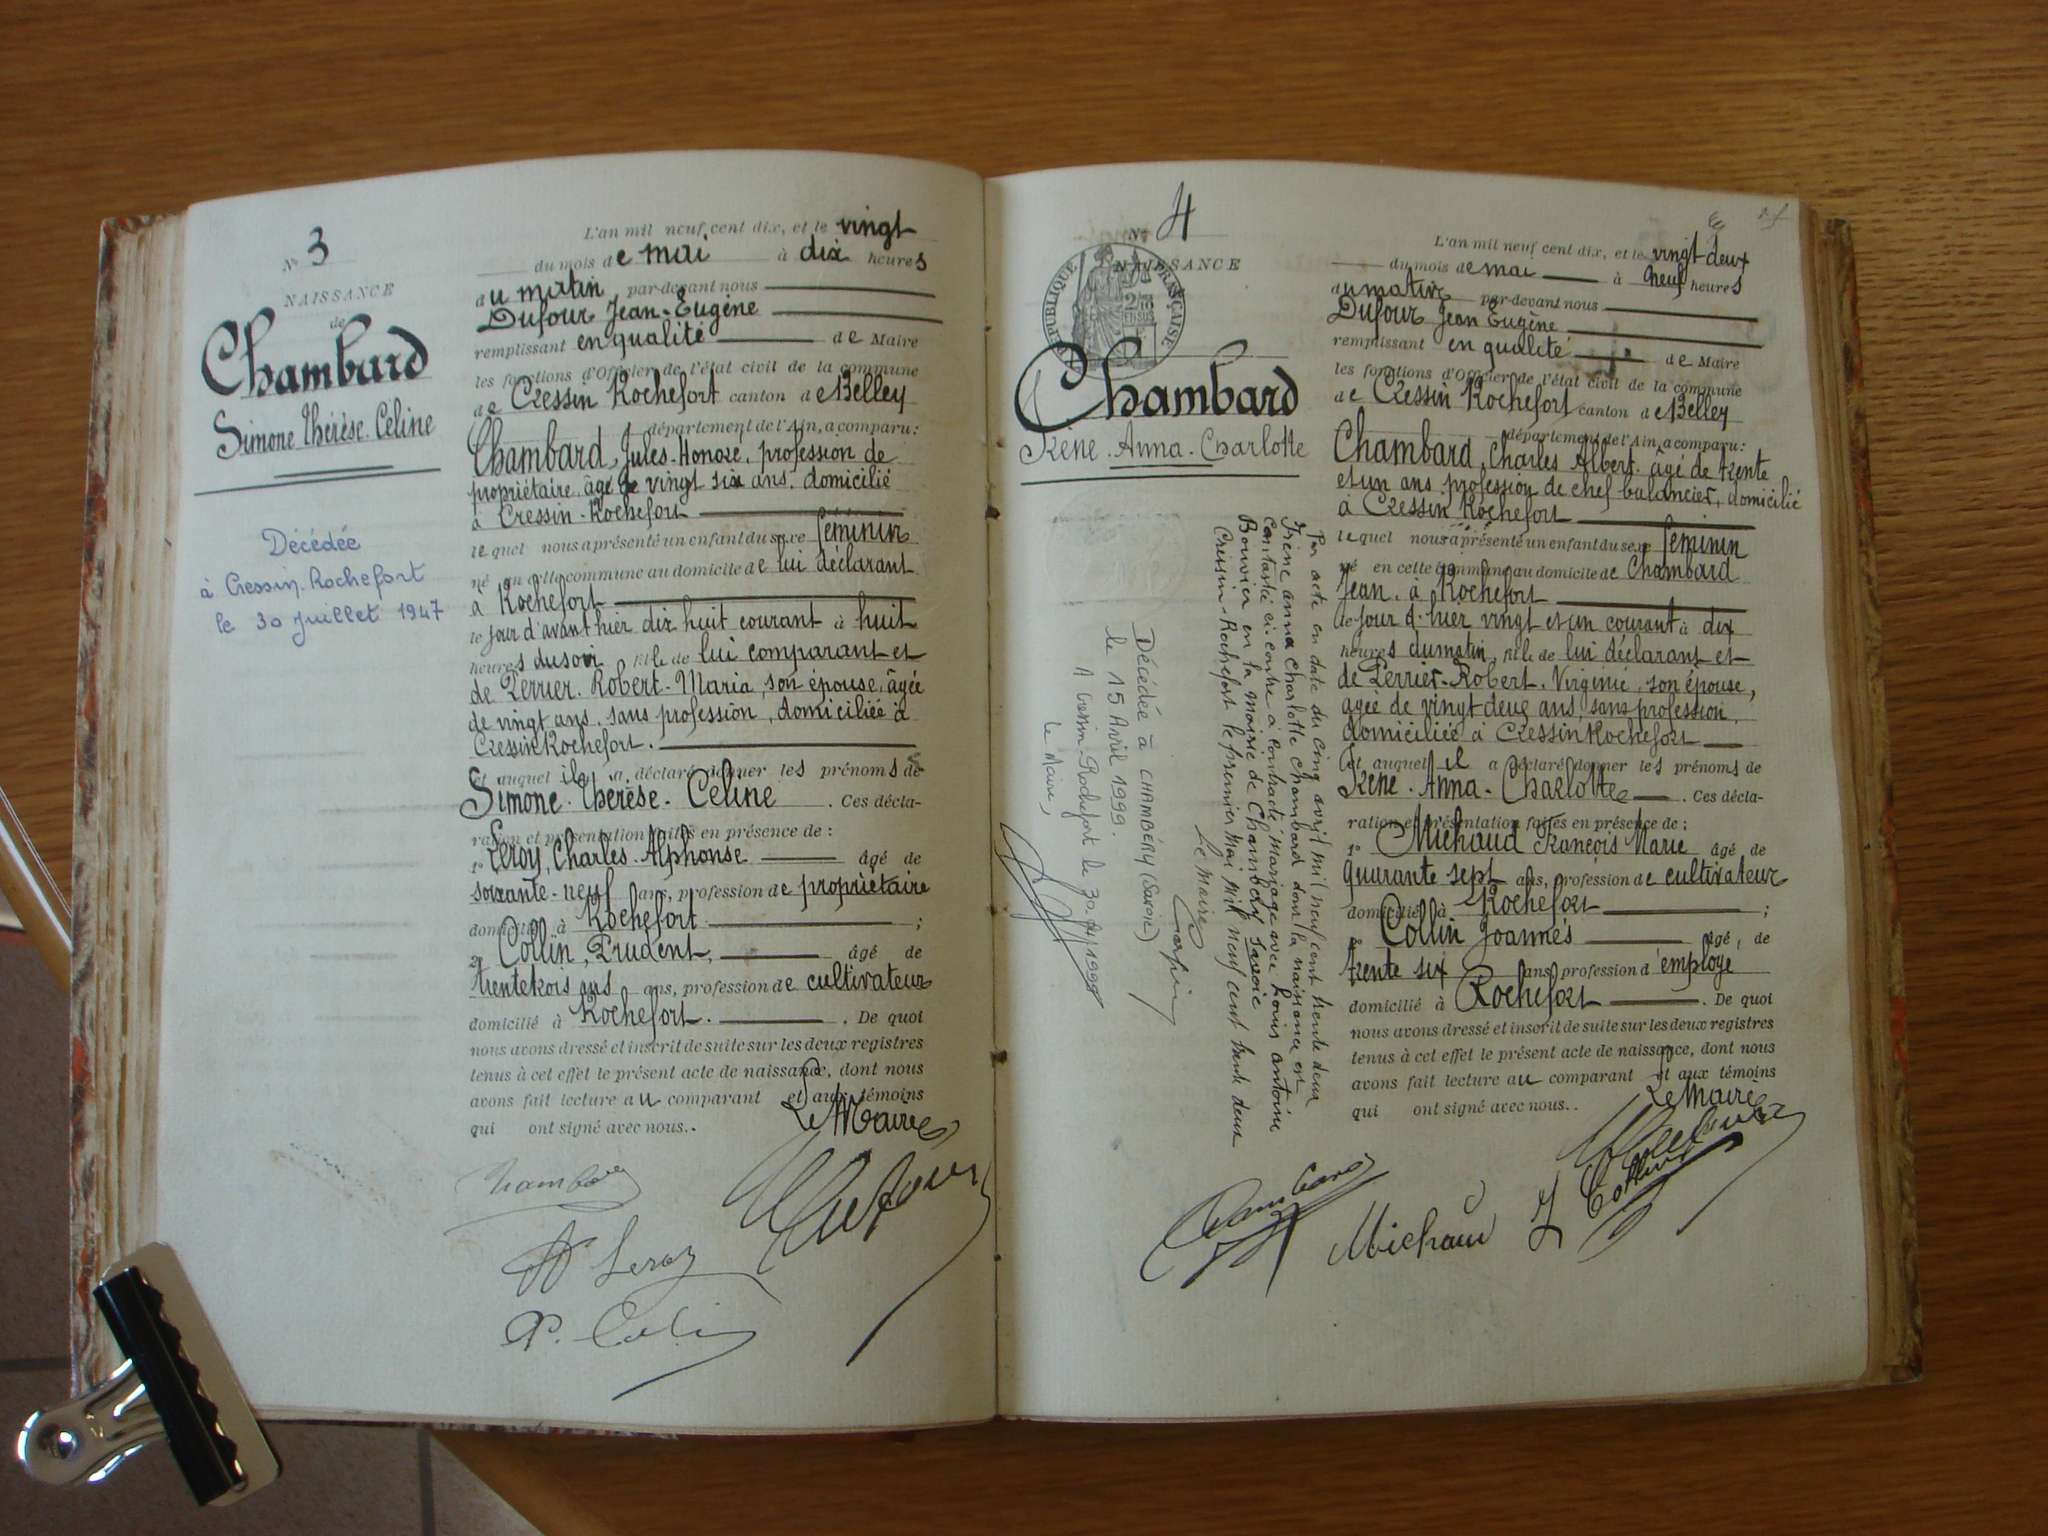 N° 3
NAISSANCE
de
Chambard
Simone Thérèse Céline
Décédée
à Cressin-Rochefort
le 30 Juillet 1947
L'an mil neuf cent dix, et le vingt
du mois de mai à dix heures
du matin par-devant nous
Dufour Jean-Eugène
remplissant en qualité de Maire
les fonctions d'Officier de l'état civil de la commune
de Cressin Rochefort canton de Belley
département de l'Ain, a comparu:
Chambard, Jules-Honoré, profession de
propriétaire, âgé de vingt six ans, domicilié
à Cressin-Rochefort
lequel nous a présenté un enfant du sexe féminin
né en cette commune au domicile de lui déclarant
à Rochefort
le jour d'avant hier dix huit courant à huit
heures du soir fille de lui comparant et
de Perrier-Robert-Maria, son épouse, âgée
de vingt ans, sans profession, domiciliée à
Cressin Rochefort.
et auquel il a déclaré donner les prénoms de
Simone-Thérèse-Céline. Ces décla-
ration et présentation faites en présence de :
1° Leroy, Charles-Alphonse âgé de
soixante-neuf ans, profession de propriétaire
domicilié à Rochefort ;
2° Collin, Prudent, âgé de
trente trois ans ans, profession de cultivateur
domicilié à Rochefort. . De quoi
nous avons dressé et inscrit de suite sur les deux registres
tenus à cet effet le présent acte de naissance, dont nous
avons fait lecture au comparant et aux témoins
qui ont signé avec nous..
Le Maire
Leroy
P. Colin
N° 4
NAISSANCE
RÉPUBLIQUE FRANÇAISE
Chambard
Irène-Anna-Charlotte
Par acte en date du cinq avril mil neuf cent trente deux
Irène anna charlotte chambard dont la naissance est
constatée ci-contre a contracté mariage avec Louis antoine
Bouvier en la mairie de Chambéry Savoie
Cressin-Rochefort le premier mai mil neuf cent trente deux
Le Maire
Décédée à CHAMBÉRY (Savoie)
le 15 Avril 1999.
A Cressin-Rochefort le 30.04.1999
Le Maire,
L'an mil neuf cent dix, et le vingt deux
du mois de mai à neuf heures
du matin par-devant nous
Dufour Jean Eugène
remplissant en qualité de Maire
les fonctions d'Officier de l'état civil de la commune
de Cressin Rochefort canton de Belley
département de l'Ain, a comparu:
Chambard, Charles Albert âgé de trente
et un ans profession de chef balancier, domicilié
à Cressin Rochefort
lequel nous a présenté un enfant du sexe féminin
né en cette commune au domicile de Chambard
Jean, à Rochefort
le jour d'hier vingt et un courant à dix
heures du matin, fille de lui déclarant et
de Perrier-Robert, Virginie, son épouse,
âgée de vingt deux ans, sans profession,
domiciliée à Cressin Rochefort
et auquel il a déclaré donner les prénoms de
Irène-Anna-Charlotte. Ces décla-
ration et présentation faites en présence de :
1° Michaud François Marie âgé de
quarante sept ans, profession de cultivateur
domicilié à Rochefort ;
2° Collin Joannès âgé, de
trente six ans profession d'employé
domicilié à Rochefort . De quoi
nous avons dressé et inscrit de suite sur les deux registres
tenus à cet effet le présent acte de naissance, dont nous
avons fait lecture au comparant et aux témoins
qui ont signé avec nous..
Le Maire
Michaud
J Collin